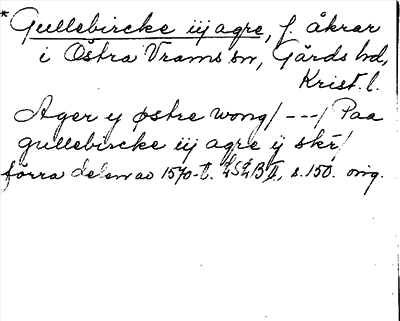 * Gullebircke iij agre, f. åkrar
i Östra Vrams sn, Gärds hd,
Krist. l.
Ager y østre wong/ - - -/ Paa
gullebircke iij agre ij skr/
förra delen av 1570-t. s. 150. orig.